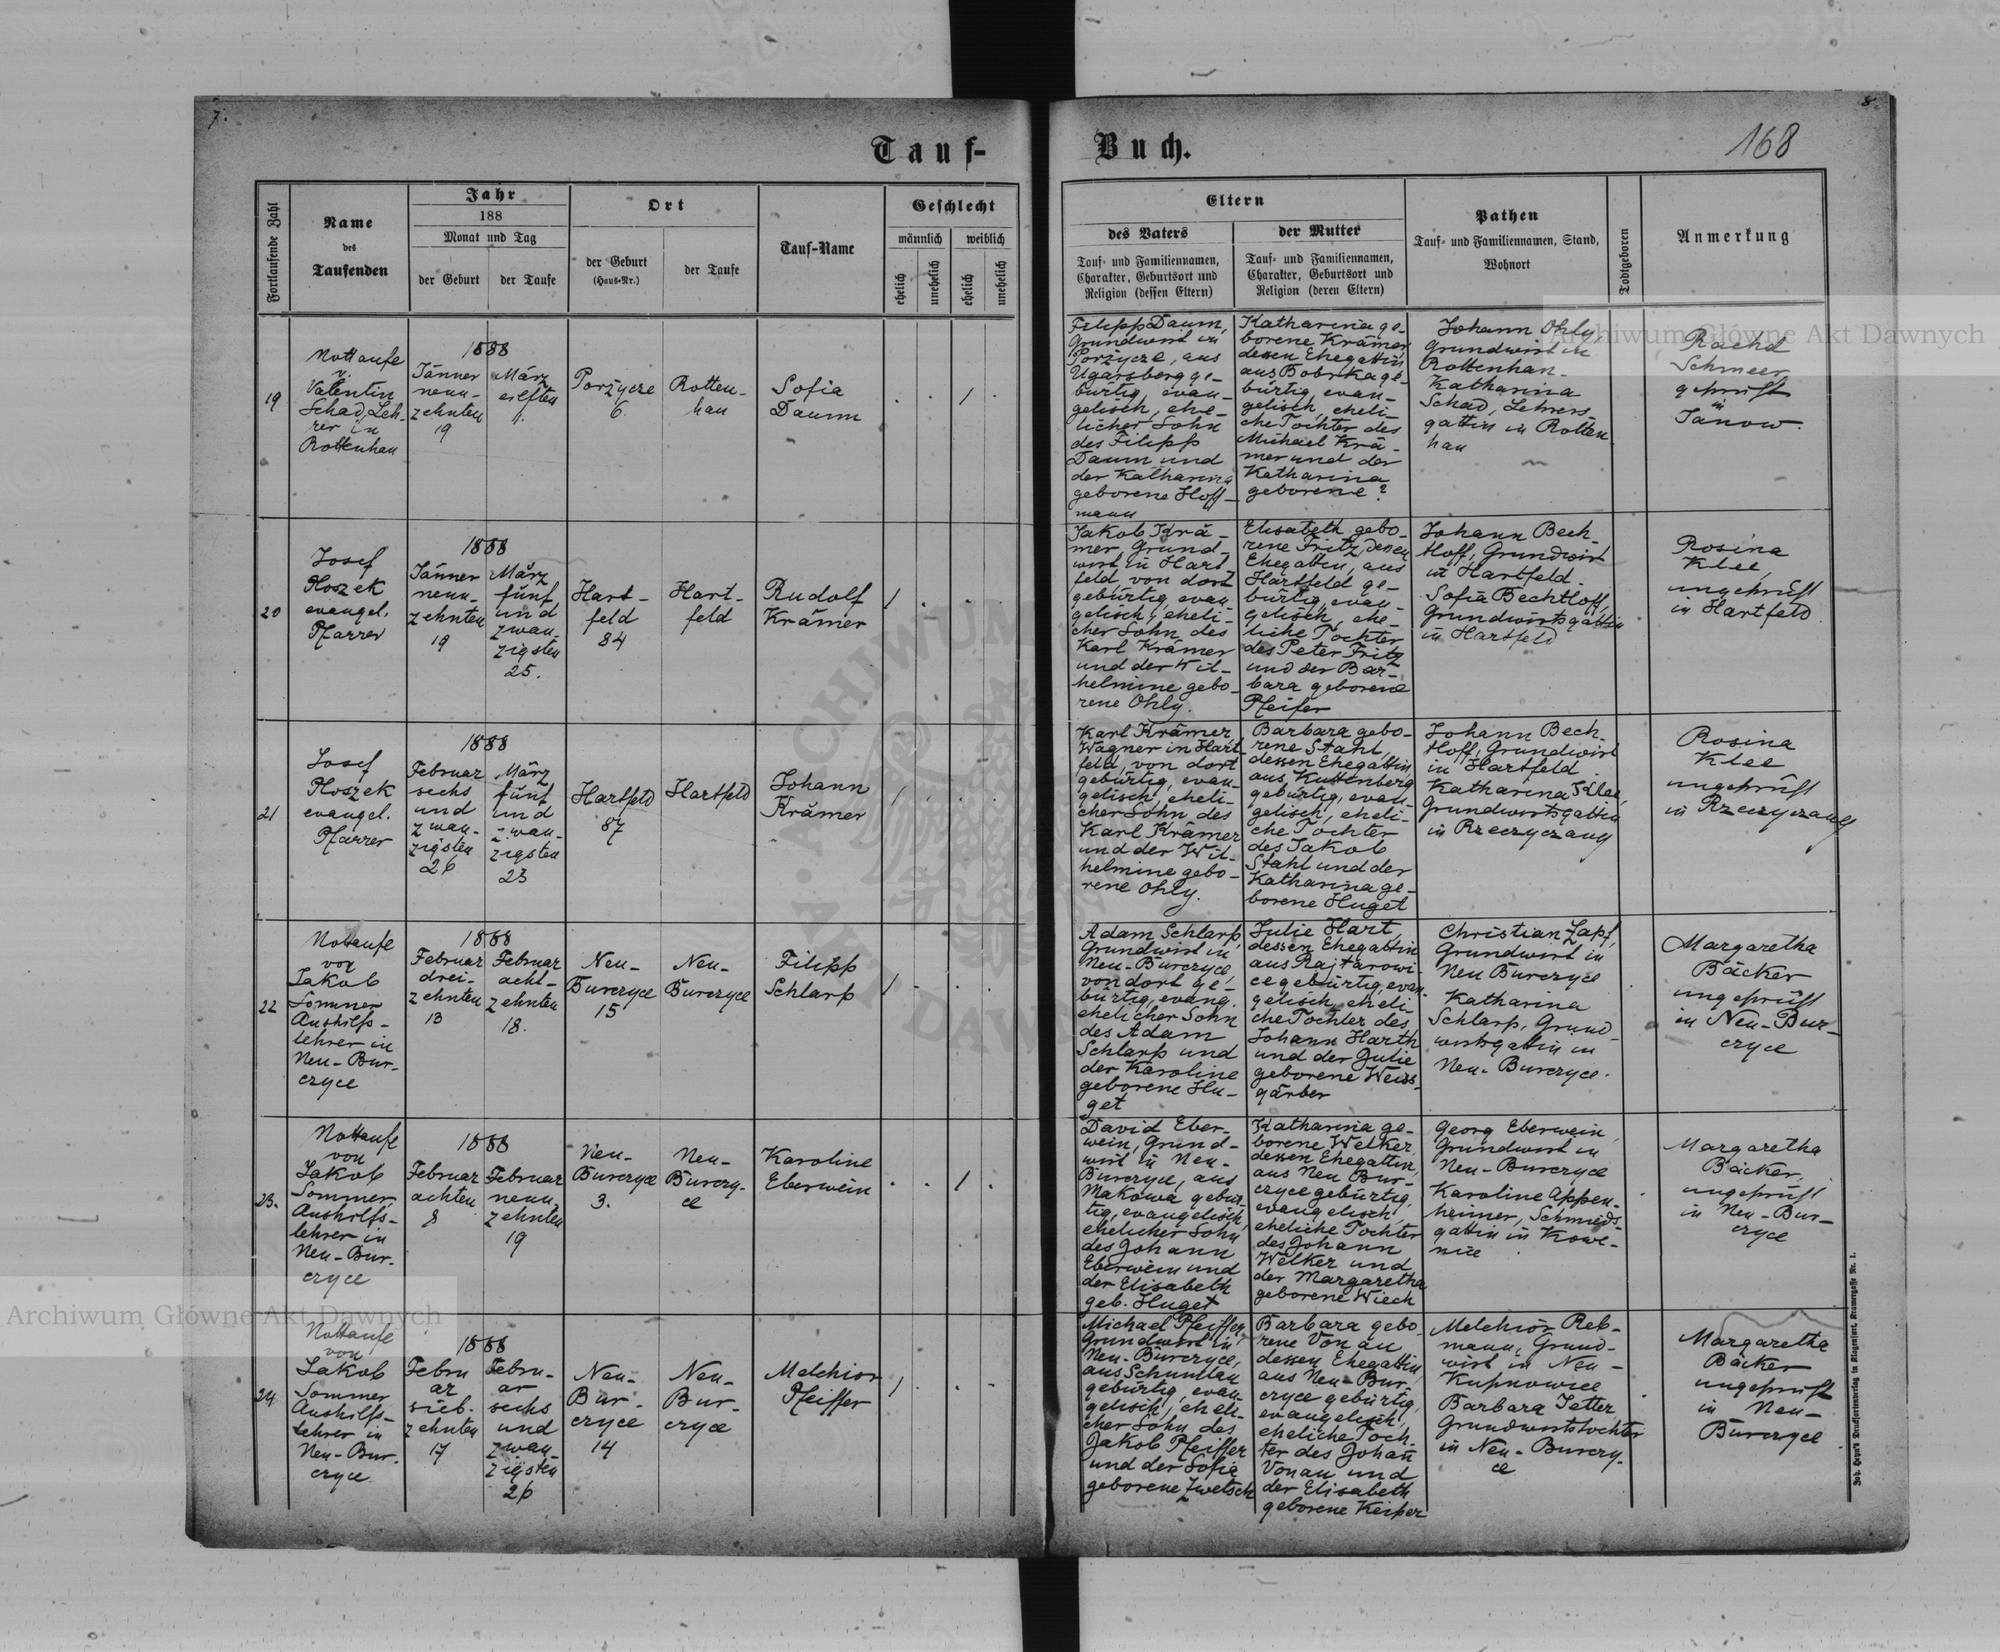 7.
8.
168
Tauf-
Buch.
Fortlaufende Zahl
Name
des
Taufenden
Jahr
188
Monat und Tag
der Geburt
der Taufe
Ort
der Geburt
(Haus-Nr.)
der Taufe
Tauf-Name
Geschlecht
männlich
weiblich
ehelich
unehelich
ehelich
unehelich
Eltern
des Vaters
Tauf- und Familiennamen,
Charakter, Geburtsort und
Religion (dessen Eltern)
der Mutter
Tauf- und Familiennamen,
Charakter, Geburtsort und
Religion (deren Eltern)
Pathen
Tauf- und Familiennamen, Stand,
Wohnort
Todtgeboren
Anmerkung
19
Nottaufe
v.
Valentin
Schad, Leh-
rer in
Rottenhan
1888
Jänner
neun-
zehnten
19
März
eilften
11.
Porzycze
6.
Rotten-
han
Sofia
Daum
1
Filipp Daum,
Grundwirt in
Porzycze, aus
Ugarsberg ge-
bürtig, evan-
gelisch, ehe-
licher Sohn
des Filipp
Daum und
der Katharina
geborene Hoff-
mann
Katharina ge-
borene Krämer,
dessen Ehegattin
aus Bobrka ge-
bürtig, evan-
gelisch, eheli-
che Tochter des
Michael Krä-
mer und der
Katharina
geborene ?
Johann Ohly,
Grundwirt in
Rottenhan.
Katharina
Schad, Lehrers-
gattin in Rotten
han
Schmeer
geprüft
in
Janow.
20
Josef
Ploszek
evangel.
Pfarrer
1888
Jänner
neun-
zehnten
19
März
fünf
und
zwan-
zigsten
25.
Hart-
feld
84
Hart-
feld
Rudolf
Krämer
1
Jakob Krä-
mer, Grund-
wirt in Hart
feld, von dort
gebürtig, evan
gelisch, eheli-
cher Sohn des
Karl Krämer
und der Wil-
helmine gebo-
rene Ohly.
Elisabeth gebo-
rene Fritz, dessen
Ehegattin, aus
Hartfeld ge-
bürtig, evan-
gelisch, ehe-
liche Tochter
des Peter Fritz
und der Bar-
bara geborene
Pfeifer
Johann Bech-
tloff, Grundwirt
in Hartfeld.
Sofia Bechtloff,
Grundwirtsgattin
in Hartfeld
Rosina
Klee,
ungeprüft
in Hartfeld
21
Josef
Ploszek
evangel.
Pfarrer
1888
Februar
sechs
und
zwan-
zigsten
26
März
fünf
und
zwan-
zigsten
25
Hartfeld
87
Hartfeld
Johann
Krämer
1
Karl Krämer,
Wagner in Hart
feld, von dort
gebürtig, evan-
gelisch, eheli-
cher Sohn des
Karl Krämer
und der Wil-
helmine gebo-
rene Ohly.
Barbara gebo-
rene Stahl,
dessen Ehegattin,
aus Kuttenberg
gebürtig, evan-
gelisch, eheli-
che Tochter
des Jakob
Stahl und der
Katharina ge-
borene Huget
Johann Bech-
tloff, Grundwirt
in Hartfeld
Katharina Klee,
Grundwirtsgattin
in Rzeczyczany
Rosina
Klee
ungeprüft
in Rzeczyczany
22
Nottaufe
von
Jakob
Sommer
Aushilfs-
lehrer in
Neu-Bur-
czyce
1888
Februar
drei-
zehnten
13
Februar
acht-
zehnten
18.
Neu-
Burczyce
15
Neu-
Burczyce
Filipp
Schlarp
1
Adam Schlarp,
Grundwirt in
Neu-Burczyce,
von dort ge-
bürtig, evang.
ehelicher Sohn
des Adam
Schlarp und
der Karoline
geborene Hu-
get
Julie Hart,
dessen Ehegattin
aus Rajtarowi-
ce gebürtig, evan-
gelisch, eheli-
che Tochter des
Johann Harth
und der Julie
geborene Weiss-
gärber
Christian Zapf,
Grundwirt in
Neu Burczyce
Katharina
Schlarp, Grund-
wirtsgattin in
Neu-Burczyce.
Margaretha
Bäcker
ungeprüft
in Neu-Bur-
czyce
23.
Nottaufe
von
Jakob
Sommer
Aushilfs-
lehrer in
Neu-Bur-
czyce
1888
Februar
achten
8
Februar
neun-
zehnten
19
Neu-
Burczyce
3.
Neu-
Burczy-
ce
Karoline
Eberwein
1
David Eber-
wein, Grund-
wirt in Neu-
Burczyce, aus
Makowa gebür
tig, evangelisch,
ehelicher Sohn
des Johann
Eberwein und
der Elisabeth
geb. Huget
Katharina ge-
borene Welker,
dessen Ehegattin,
aus Neu Bur-
czyce gebürtig,
evangelisch,
eheliche Tochter
des Johann
Welker und
der Margaretha
geborene Wiech
Georg Eberwein,
Grundwirt in
Neu-Burczyce
Karoline Appen-
heimer, Schmieds-
gattin in Kowe-
nice
Margaretha
Bäcker,
ungeprüft
in Neu-Bur-
czyce
24
Nottaufe
von
Jakob
Sommer
Aushilfs-
lehrer in
Neu-Bur-
czyce
1888
Febru
ar
sieb-
zehnten
17
Febru-
ar
sechs
und
zwan-
zigsten
26
Neu-
Bur-
czyce
14
Neu-
Bur-
czyce
Melchior
Pfeiffer
1
Michael Pfeiffer
Grundwirt in
Neu-Burczyce,
aus Schumlau
gebürtig, evan
gelisch, eheli-
cher Sohn des
Jakob Pfeiffer
und der Sofie
geborene Zwetsch
Barbara gebo-
rene Vonau
dessen Ehegattin
aus Neu-Bur-
czyce gebürtig,
evangelisch,
eheliche Toch-
ter des Johann
Vonau und
der Elisabeth
geborene Keiper
Melchior Reb-
mann, Grund-
wirt in Neu-
Kupnowice
Barbara Jetter
Grundwirtstochter
in Neu-Burczy-
ce
Margaretha
Bäcker
ungeprüft
in Neu-
Burczyce
Joh. Heyn's Drucksortenverlag in Klagenfurt, Kramergasse Nr. 1.
Archiwum Główne Akt Dawnych
Archiwum Główne Akt Dawnych